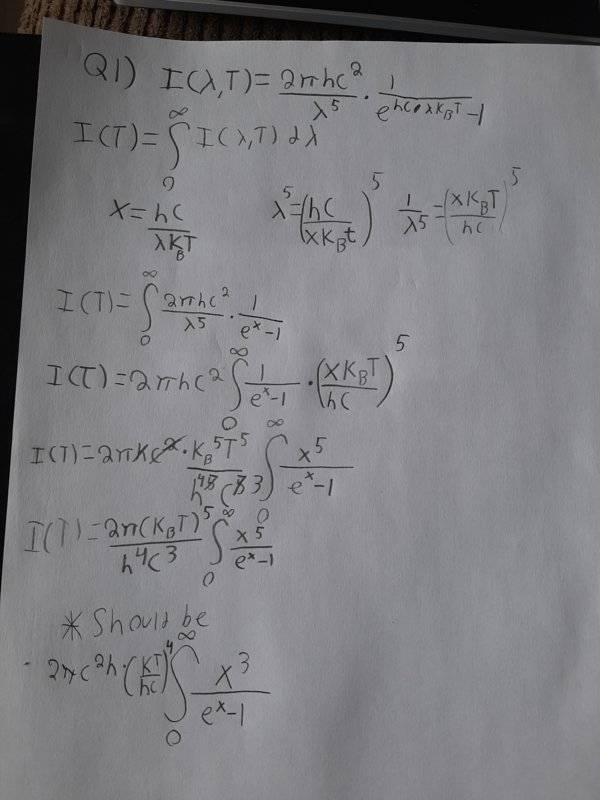 Q1) I(λ,T) = 2πhc²/λ⁵ · 1/(e^(hc/λK_BT) -1)
I(T) = ∫₀^∞ I(λ,T) dλ
x = hc/(λK_BT) λ⁵ = (hc/(xK_Bt))⁵ 1/λ⁵ = (xK_BT/hc)⁵
I(T) = ∫₀^∞ 2πhc²/λ⁵ · 1/(e^x-1)
I(T) = 2πhc² ∫₀^∞ 1/(e^x-1) · (xK_BT/hc)⁵
I(T) = 2πhc² · K_B⁵T⁵/(h⁴ c³) ∫₀^∞ x⁵/(e^x-1)
I(T) = 2π(K_BT)⁵/(h⁴c³) ∫₀^∞ x⁵/(e^x-1)
* Should be
2πc²h · (KT/hc)⁴ ∫₀^∞ x³/(e^x-1)